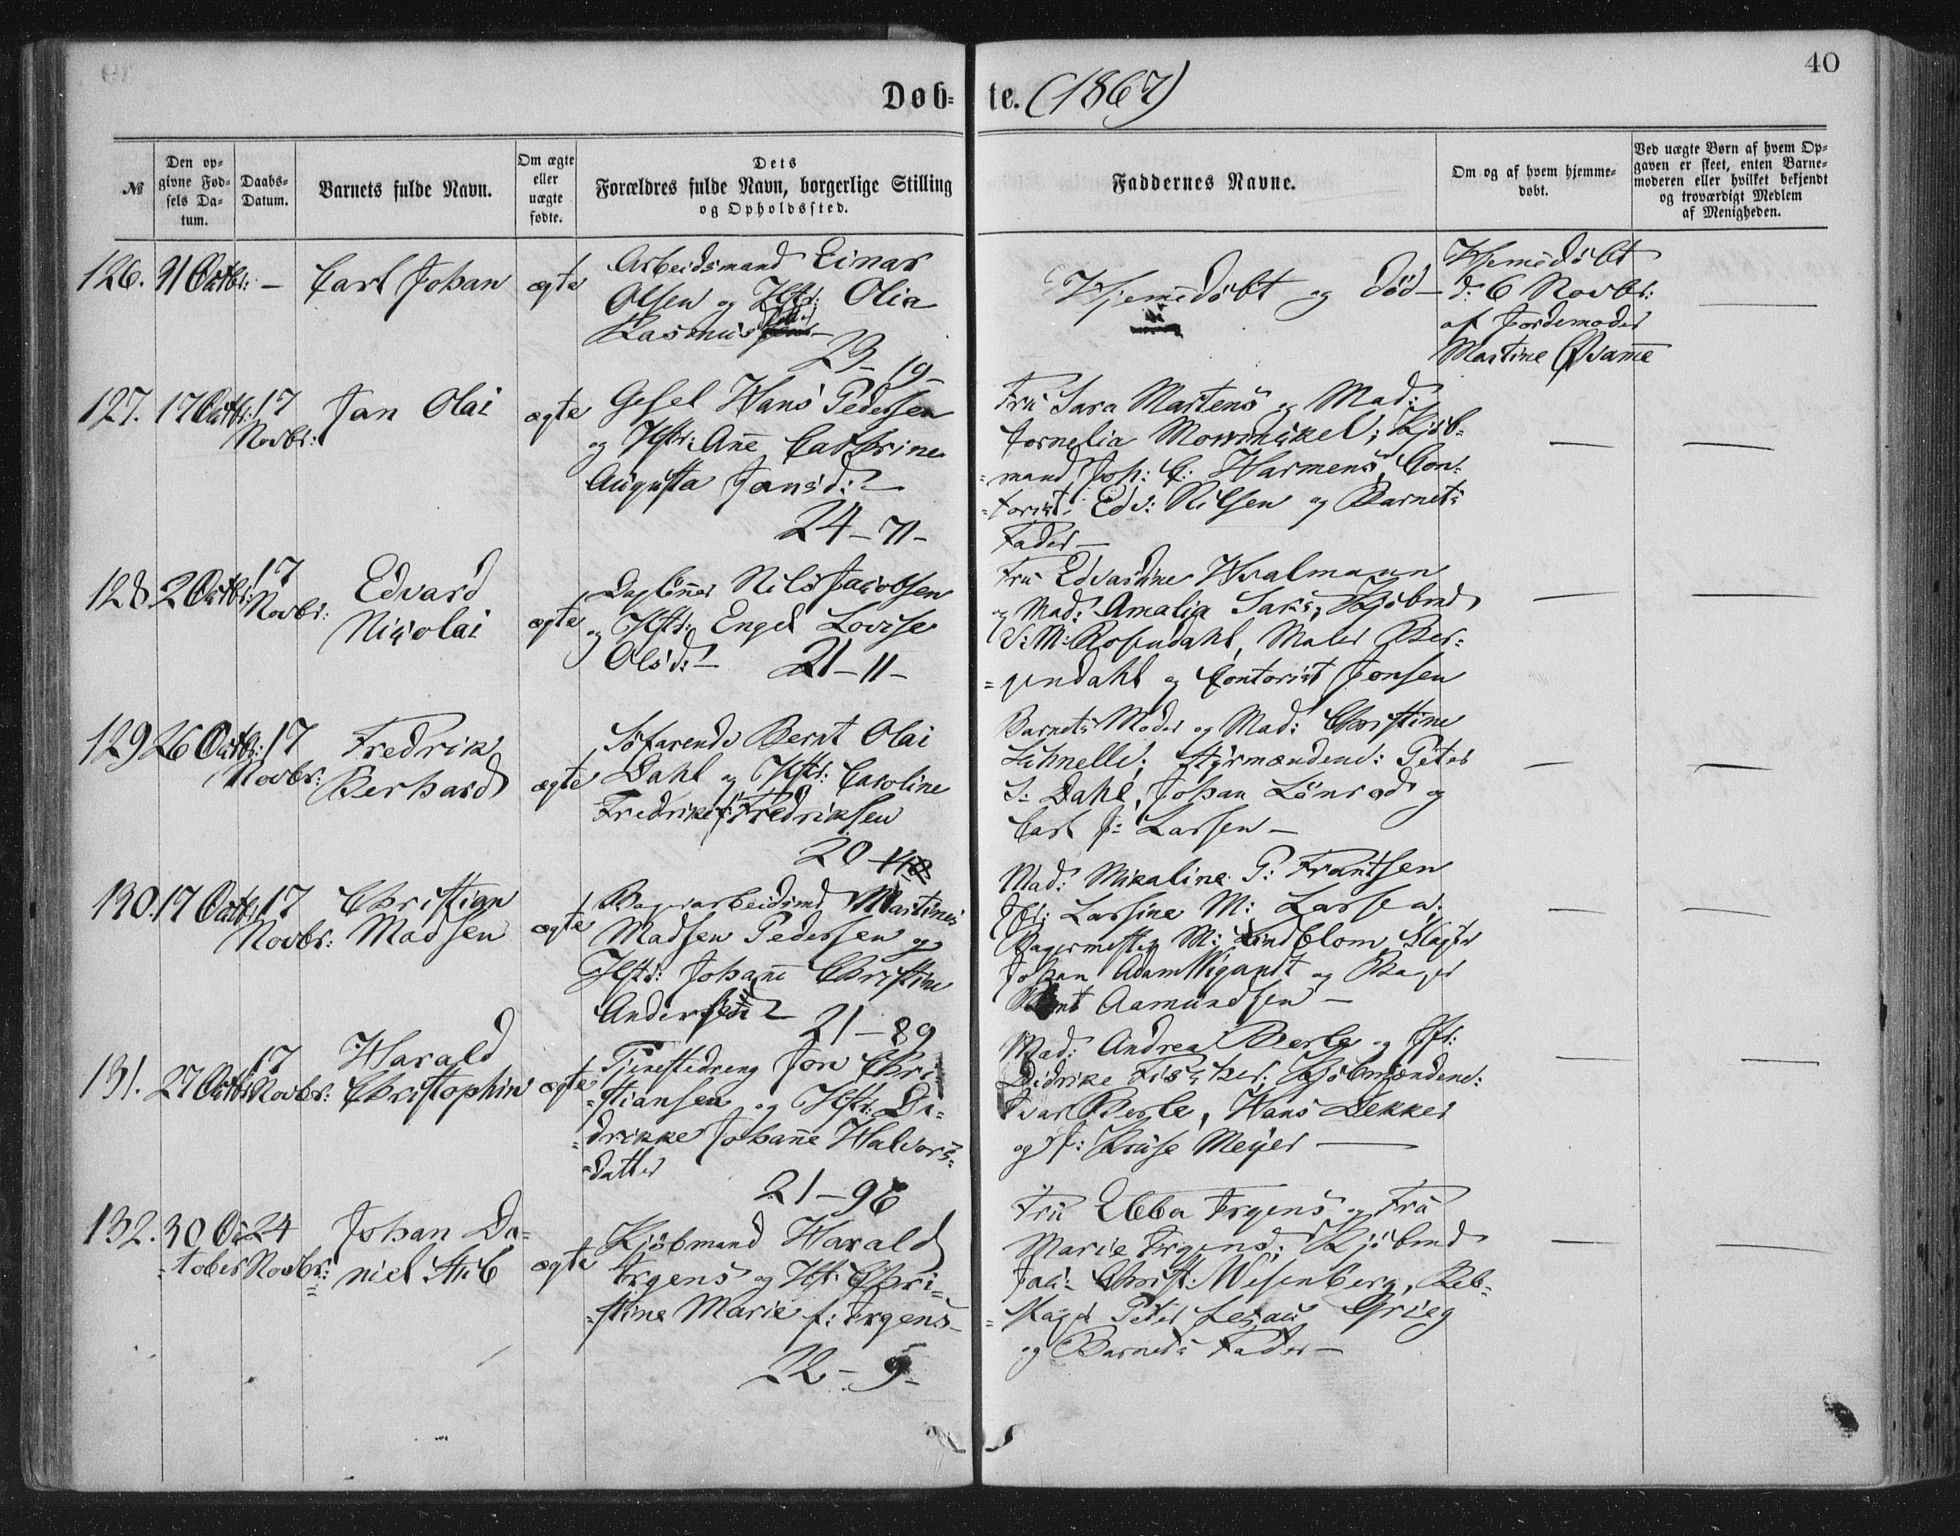 40
Døb- te. (1867)
№
Den opgivne Fødsels Datum.
Daabs-Datum.
Barnets fulde Navn.
Om ægte eller uægte fødte.
Dets Forældres fulde Navn, borgerlige Stilling og Opholdssted.
Faddernes Navne.
Om og af hvem hjemmedøbt.
Ved uægte Børn af hvem Opgaven er skeet, enten Barnemoderen eller hvilket bekjendt og troværdigt Medlem af Menigheden.
126. 31 Octbr: — Carl Johan ægte
Arbeidsmand Einar
Olsen og Hstr: Olia
Rasmus
23-19-
Hjemedøbt og død —
Hjemedøbt
d: 6 Novbr:
af Jordemoder
Martine Qvamme
127. 17 Octbr: 17 Novbr: Jan Olai ægte
Gesel Hans Pedersen
og Hstr: Ane Cathrine
Augusta Jansd: —
24-71-
Fru Sara Martens og Mad:
Cornelia Mowinckel; Kjøb-
=mand Joh: C: Harmens, Con-
=torist Edv: Nilsen og Barnets
Fader —
128. 2 Octbr: 17 Novbr: Edvard
Nicolai ægte
Dagløner Nils Jacobsen
og Hstr: Engel Lovise
Olsd: —
21-11-
Fru Edvardine Walmann
og Mad: Amalia Saks; Kjøbmd
V: M: Rosendahl, Maler Ber-
=gendahl og Contorist Jensen
129 26 Octbr: 17 Novbr: Fredrik
Berhard ægte
Søfarende Bernt Olai
Dahl og Hstr: Caroline
Fredrikke f: Fredriksen
20-
Barnets Moder og Mad: Christine
Schnelle; Styrmændene: Peter
S: Dahl, Johan Lønrod og
Carl J: Larsen —
130. 17 Octbr: 17 Novbr: Christian
Madsen ægte
Bagerarbeidsmd Martines
Madsen Pedersen og
Hstr: Johane Christine
Andersen —
21-89
Mad: Mikaline P: Frantsen
Jfr: Larsine M: Larsen;
Bagermester M: Lindblom, Slagter
Johan Adam Wigandt og Bager
Bent Aamundsen —
131. 27 Octbr: 17 Novbr: Harald
Christophin ægte
Tjenestedreng Jon Chri-
=stiansen og Hstr: Di-
=drikke Johanne Halvors-
=datter
21-96
Mad: Andrea Berle og Jfr:
Didrike Fischer; Kjøbmændene:
Ivar Berle, Hans Dekker
og J: Kruse Meyer —
132. 30 Oc-
=tober 24 Novbr: Johan Da-
niel Stub ægte
Kjøbmand Harald
Irgens og Hstr: Chri-
=stine Marie f: Irgens —
22-5-
Fru Ebba Irgens og Fru
Marie Irgens; Kjøbmd
Jac: Christ: Wesenberg, Reb-
=slager Peter Lexau Grieg
og Barnets Fader —